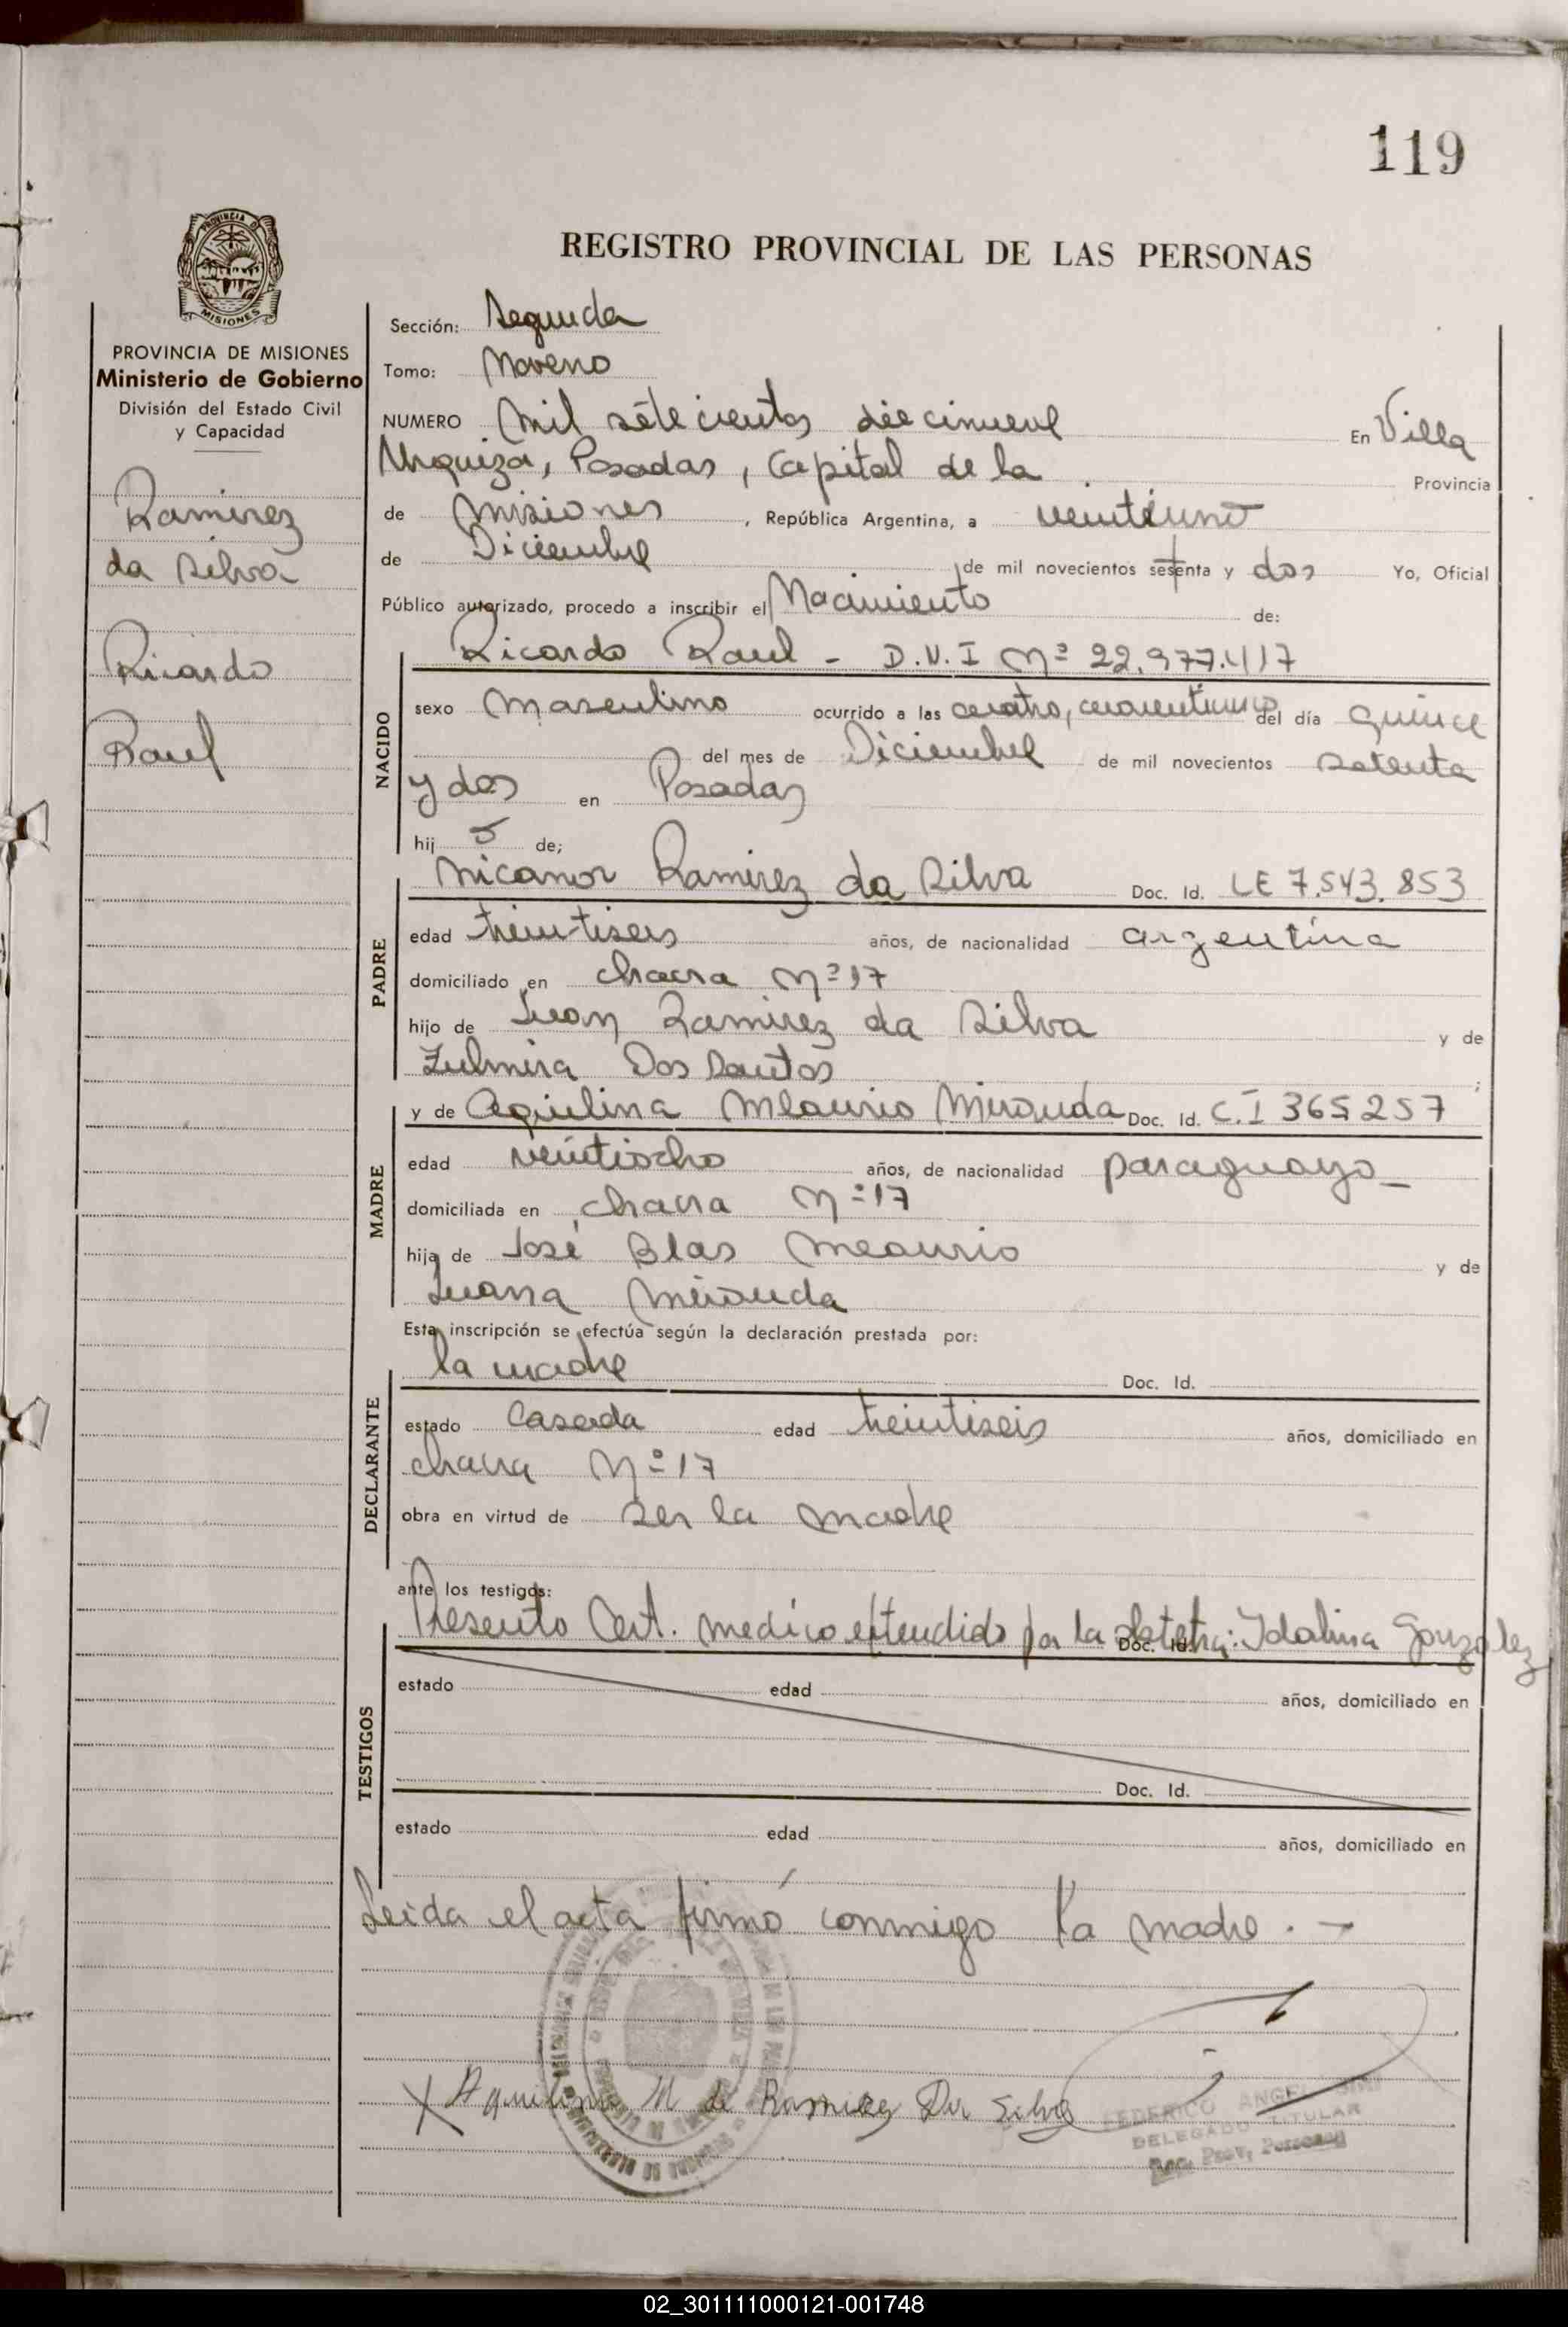 119
REGISTRO PROVINCIAL DE LAS PERSONAS
PROVINCIA DE
MISIONES
PROVINCIA DE MISIONES
Ministerio de Gobierno
División del Estado Civil
y Capacidad
Ramirez
da Silva
Ricardo
Raul
Sección: Segunda
Tomo: Noveno
NUMERO mil setecientos diecinueve En Villa
Urquiza, Posadas, Capital de la Provincia
de Misiones, República Argentina, a veintiuno
de Diciembre de mil novecientos setenta y dos Yo, Oficial
Público autorizado, procedo a inscribir el Nacimiento de:
Ricardo Raul - D.N.I Nº 22.977.417
NACIDO
sexo masculino ocurrido a las cuatro, cuarentiuno del día quince
del mes de Diciembre de mil novecientos setenta
y dos en Posadas
hijo de;
Nicanor Ramirez da Silva Doc. Id. LE 7.543.853
PADRE
edad treintiseis años, de nacionalidad argentina
domiciliado en chacra Nº 17
hijo de Juan Ramirez da Silva y de
Zulmira Dos Santos ;
y de Aquilina Meaurio Miranda Doc. Id. C.I 365257
MADRE
edad veintiocho años, de nacionalidad paraguaya
domiciliada en chacra Nº 17
hija de José Blas Meaurio y de
Juana Miranda
Esta inscripción se efectúa según la declaración prestada por:
la madre Doc. Id.
DECLARANTE
estado Casada edad treintiseis años, domiciliado en
chacra Nº 17
obra en virtud de ser la madre
ante los testigos:
Presento Cert. medico extendido por la obstetra: Idalina Gonzalez
Doc. Id.
TESTIGOS
estado edad años, domiciliado en
Doc. Id.
estado edad años, domiciliado en
Leida el acta firmó conmigo la madre. -
X Aquilina M de Ramirez Da Silva
FEDERICO ANGEL
DELEGADO TITULAR
Reg. Prov. Personas
02_301111000121-001748